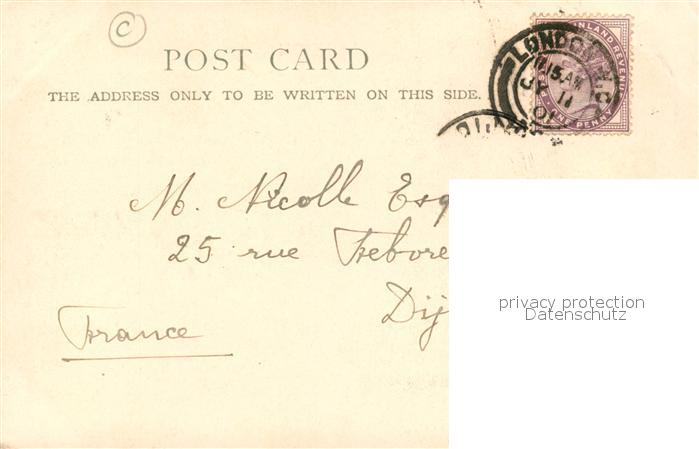 C
POST CARD
THE ADDRESS ONLY TO BE WRITTEN ON THIS SIDE.
INLAND REVENUE
ONE PENNY
LONDON W.C
11 15 AM
SP 11
01
M. Nicolle Esq
25 rue
Dij
France
privacy protection
Datenschutz